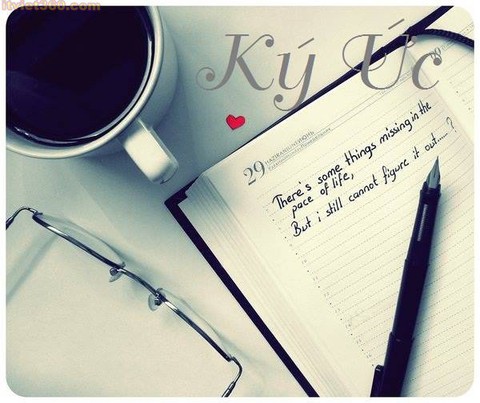 itviet360.com
Ký Ức
29
There's some things missing in the
pace of life,
But i still cannot figure it out.....?